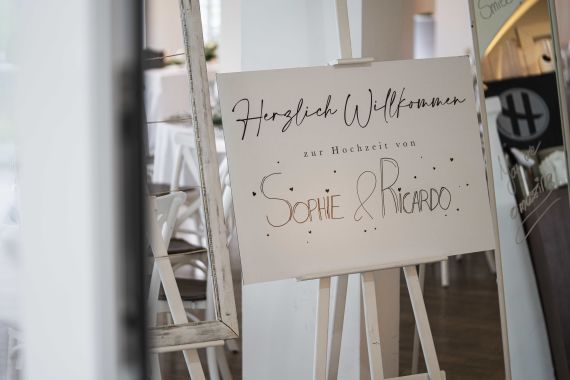 Herzlich Willkommen
zur Hochzeit von
SOPHIE & RICARDO